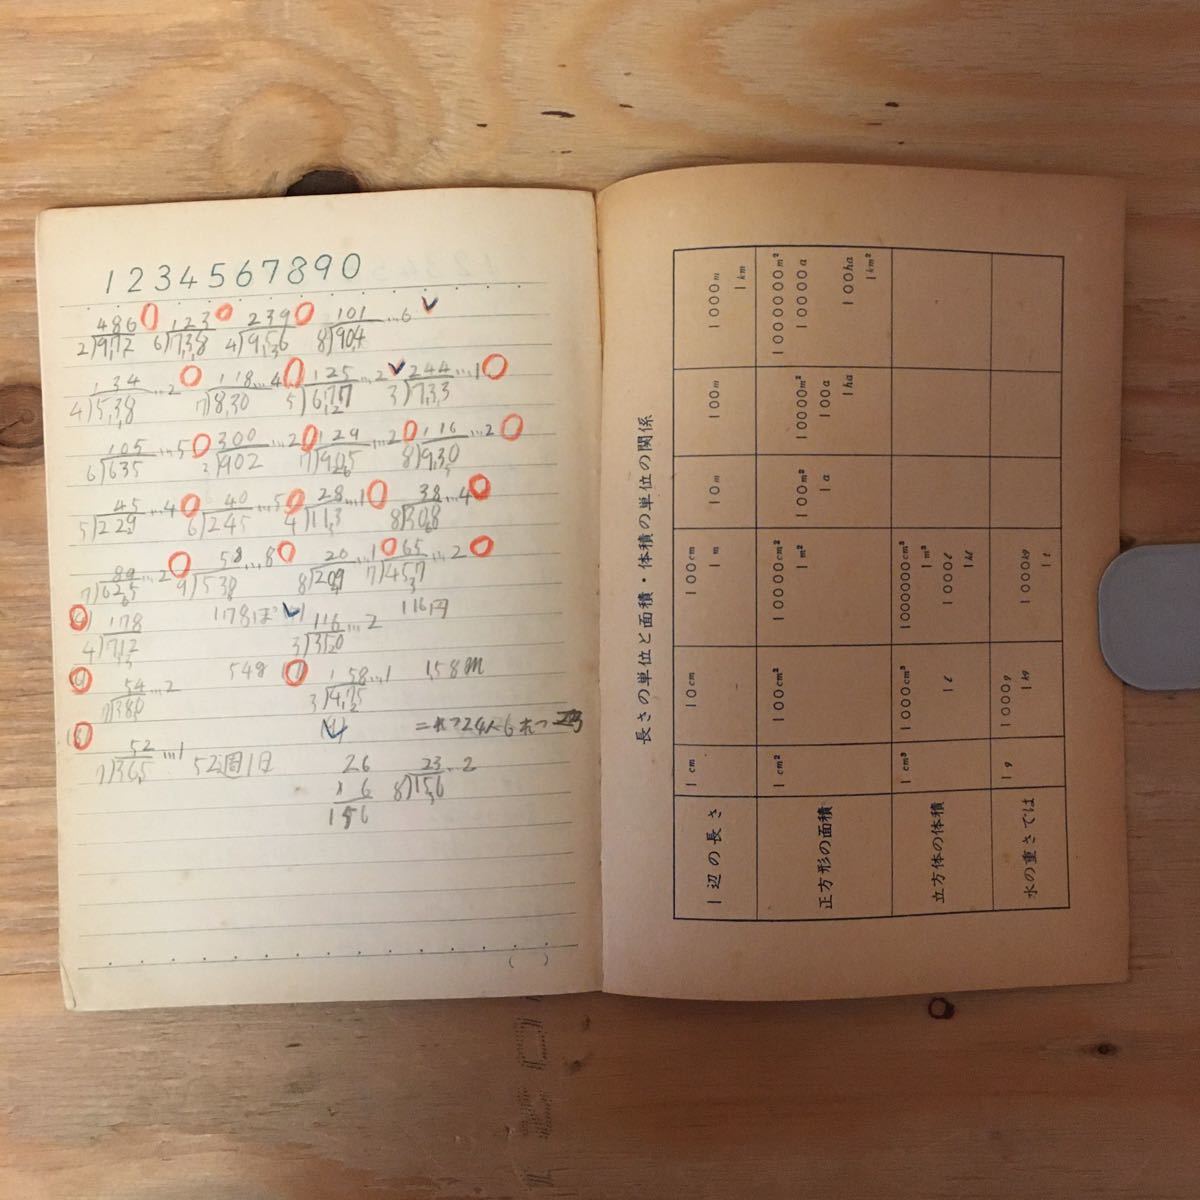 1234567890
486 123 239 101…6
2)972 6)738 4)956 8)904
134…2 118…4 125…2 244…1
4)538 7)830 5)677 3)733
105…5 300…2 129…2 116…2
6)635 902 7)905 8)930
45…4 40…5 28…1 38…4
5)229 6)245 4)113 8)308
89…2 58…8 20…1 65…2
7)625 9)538 8)209 7)457
178 178 116…2 116円
4)712 3)350
54…2 54g 158…1 1,58m
7)380 3)475
52…1 52週1日
7)365
26 23…2
6 8)156
156
( )
長さの単位と面積・体積の単位の関係
1辺の長さ 1cm 10cm 100cm 1m 10m 100m 1000m 1km
正方形の面積 1cm² 100cm² 10000cm² 1m² 100m² 1a 10000m² 100a 1ha 1000000m² 10000a 100ha 1km²
立方体の体積 1cm³ 1000cm³ 1ℓ 1000000cm³ 1m³ 1000ℓ 1kℓ
水の重さでは 1g 1000g 1kg 1000kg 1t